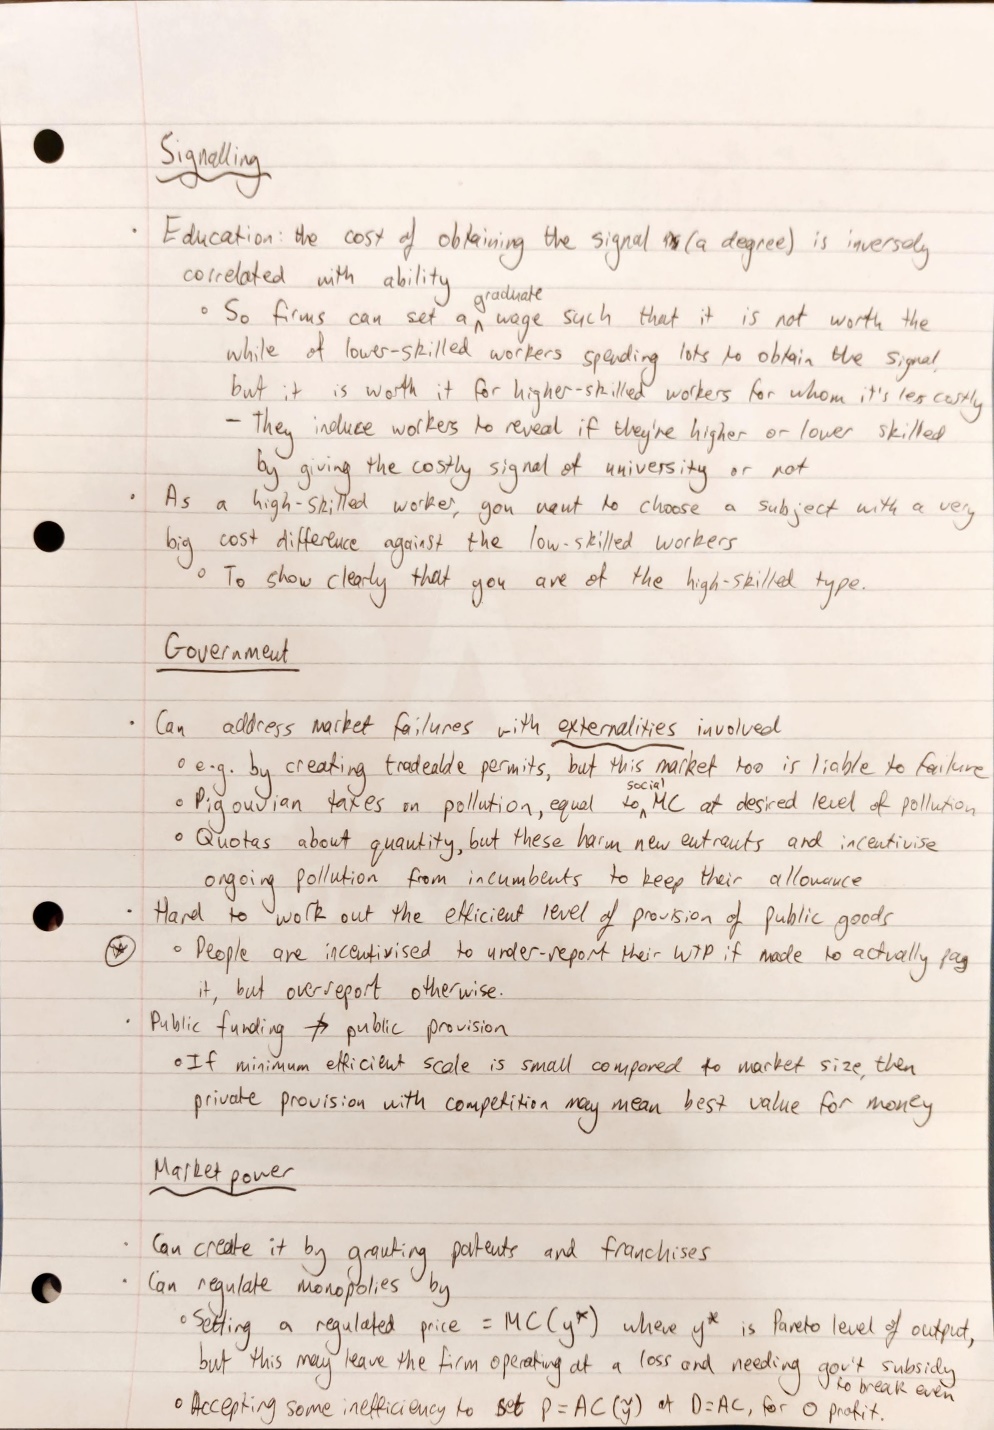 Signalling
· Education: the cost of obtaining the signal (a degree) is inversely
correlated with ability
◦ So firms can set a graduate wage such that it is not worth the
while of lower-skilled workers spending lots to obtain the signal,
but it is worth it for higher-skilled workers for whom it's less costly
– They induce workers to reveal if they're higher or lower skilled
by giving the costly signal of university or not
· As a high-skilled worker, you want to choose a subject with a very
big cost difference against the low-skilled workers
◦ To show clearly that you are of the high-skilled type.
Government
· Can address market failures with externalities involved
◦ e.g. by creating tradeable permits, but this market too is liable to failure
◦ Pigouvian taxes on pollution, equal to social MC at desired level of pollution
◦ Quotas about quantity, but these harm new entrants and incentivise
ongoing pollution from incumbents to keep their allowance
· Hard to work out the efficient level of provision of public goods
◦ People are incentivised to under-report their WTP if made to actually pay
it, but overreport otherwise.
· Public funding ⇏ public provision
◦ If minimum efficient scale is small compared to market size, then
private provision with competition may mean best value for money
Market power
· Can create it by granting patents and franchises
· Can regulate monopolies by
◦ Setting a regulated price = MC(y*) where y* is Pareto level of output,
but this may leave the firm operating at a loss and needing gov't subsidy
to break even
◦ Accepting some inefficiency to set P = AC(ỹ) at D=AC, for 0 profit.